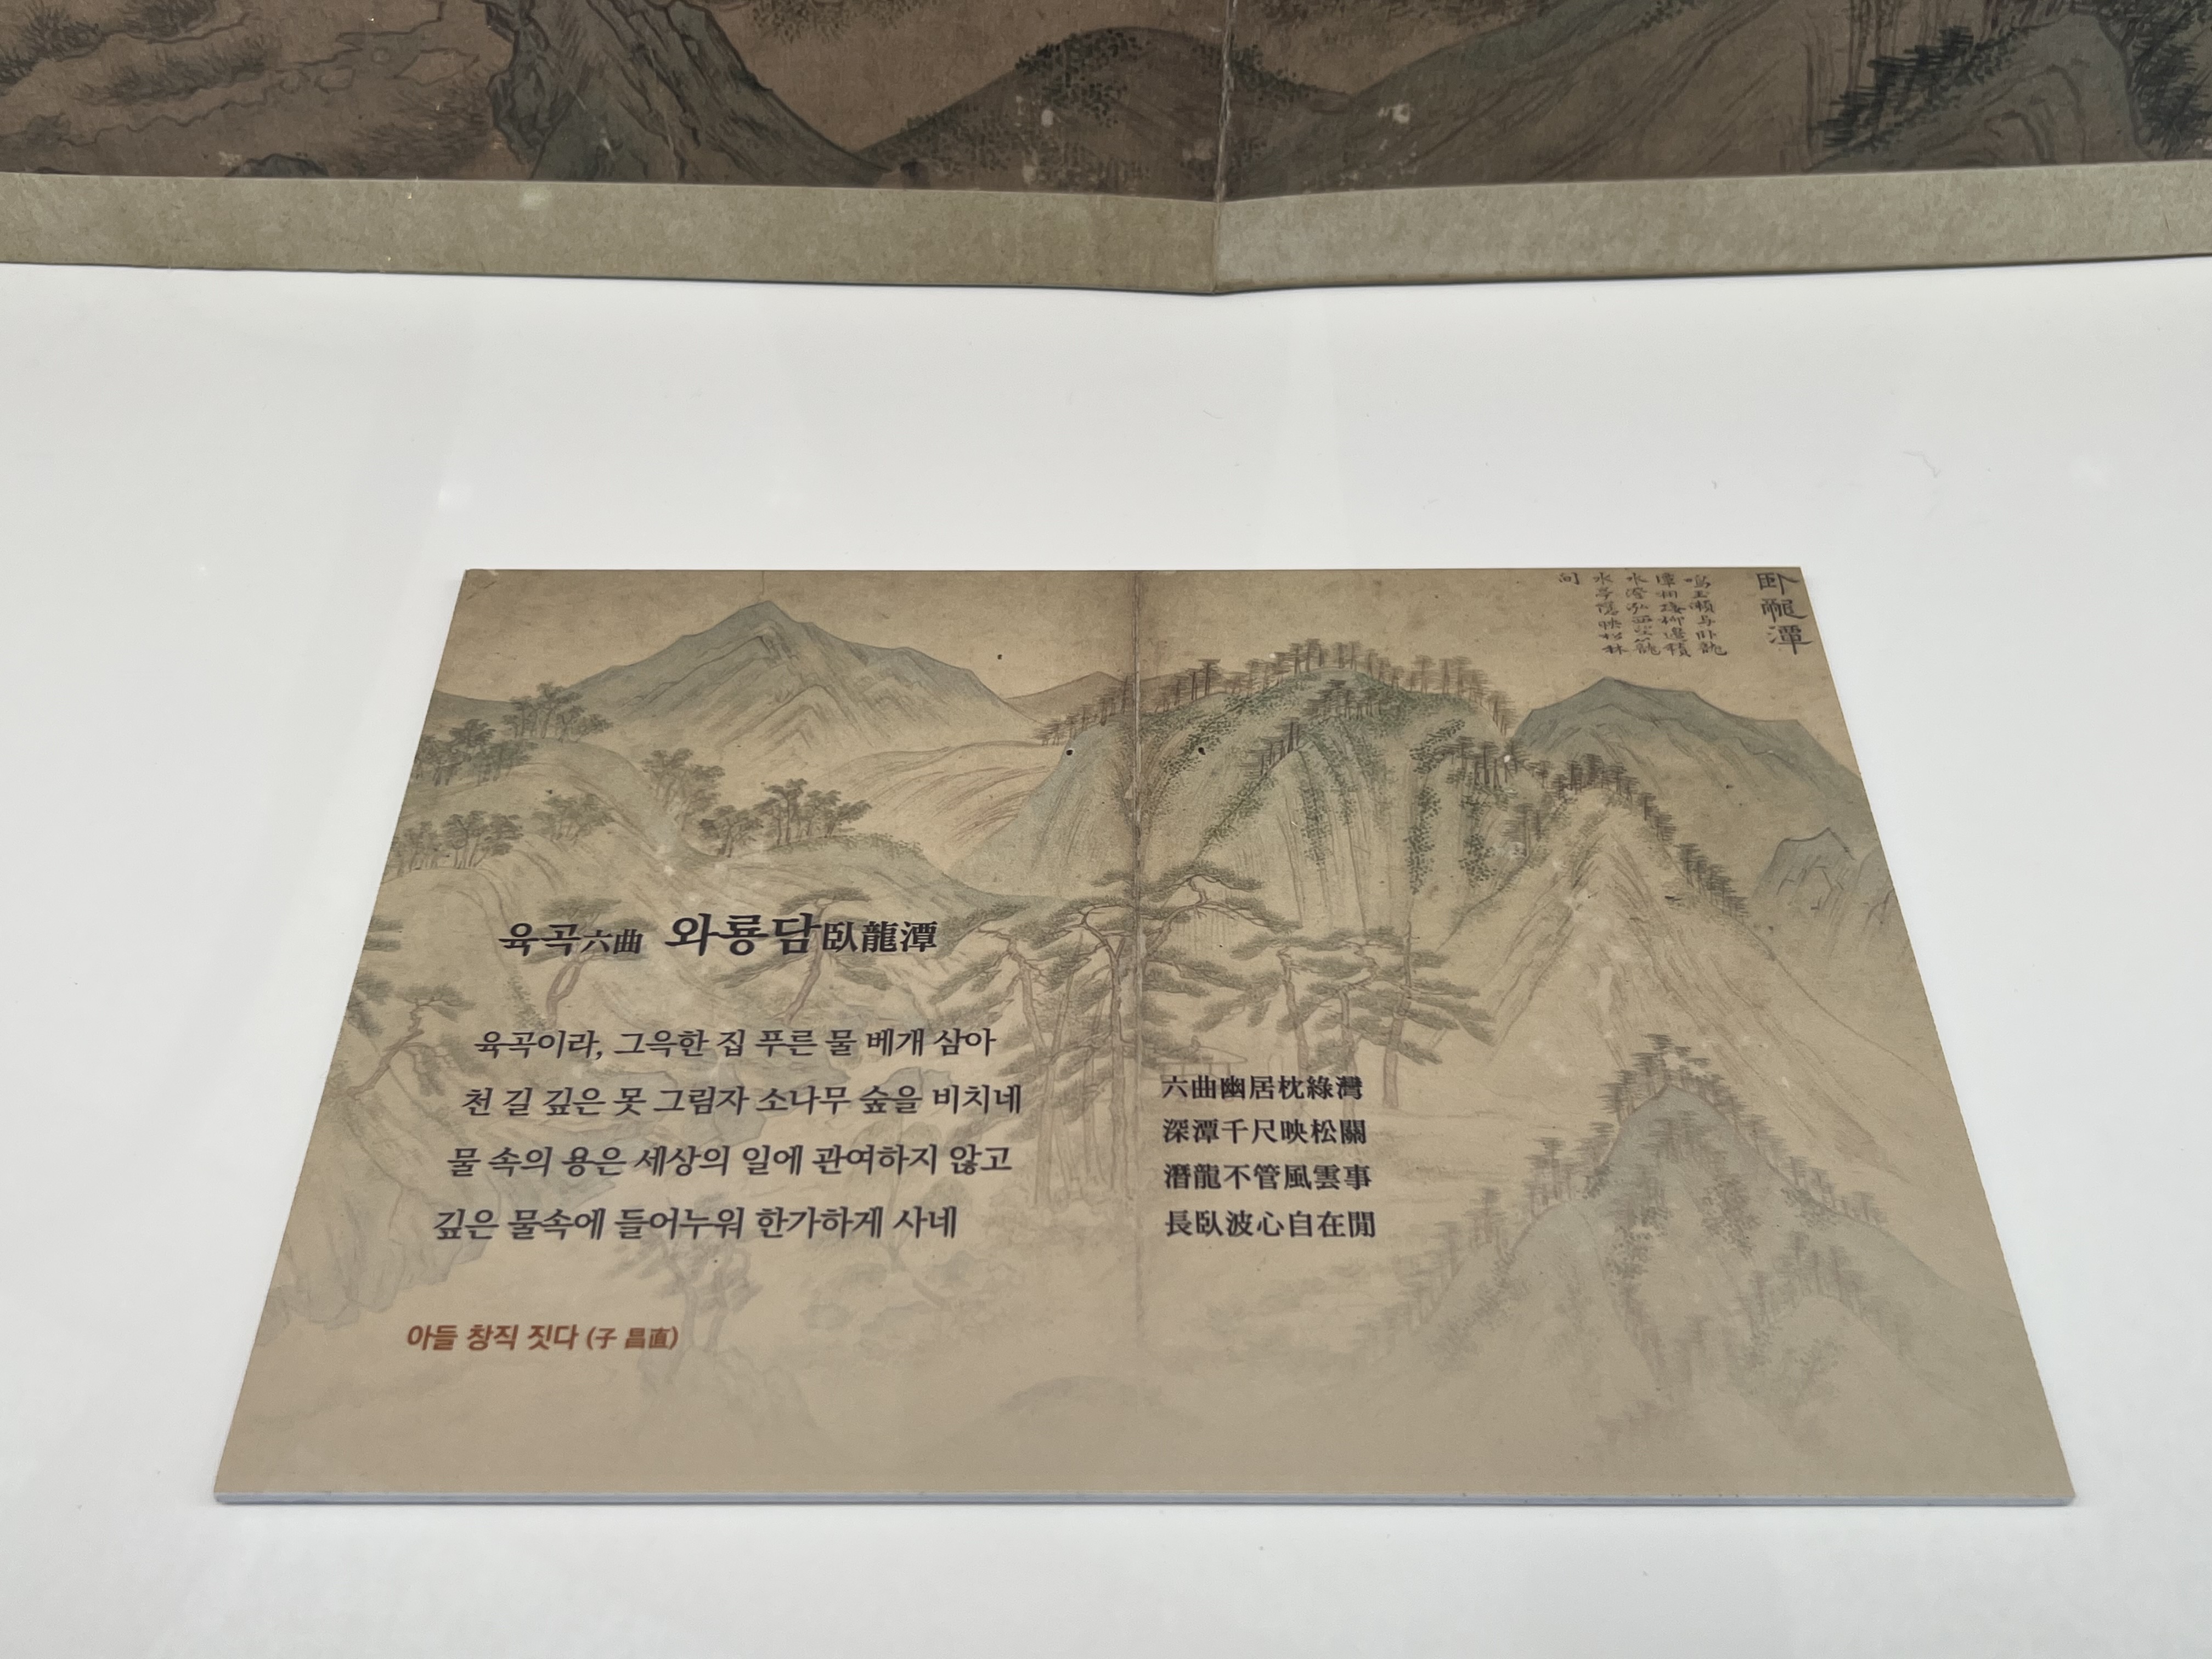 臥龍潭
鳴玉瀨与臥龍
潭相接柳邊積
水澄泓
水亭隱映松林
间
육곡六曲 와룡담臥龍潭
육곡이라, 그윽한 집 푸른 물 베개 삼아
천 길 깊은 못 그림자 소나무 숲을 비치네
물 속의 용은 세상의 일에 관여하지 않고
깊은 물속에 들어누워 한가하게 사네
六曲幽居枕綠灣
深潭千尺映松關
潛龍不管風雲事
長臥波心自在閒
아들 창직 짓다 (子 昌直)